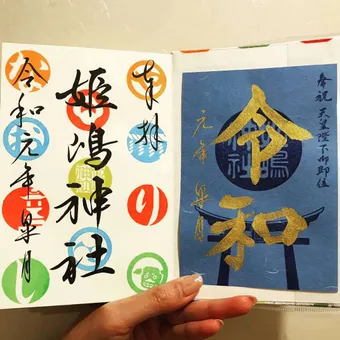 奉祝 天皇陛下御即位
令和
元年 皐月
奉拝
り
姫嶋神社
令和元年皐月
し